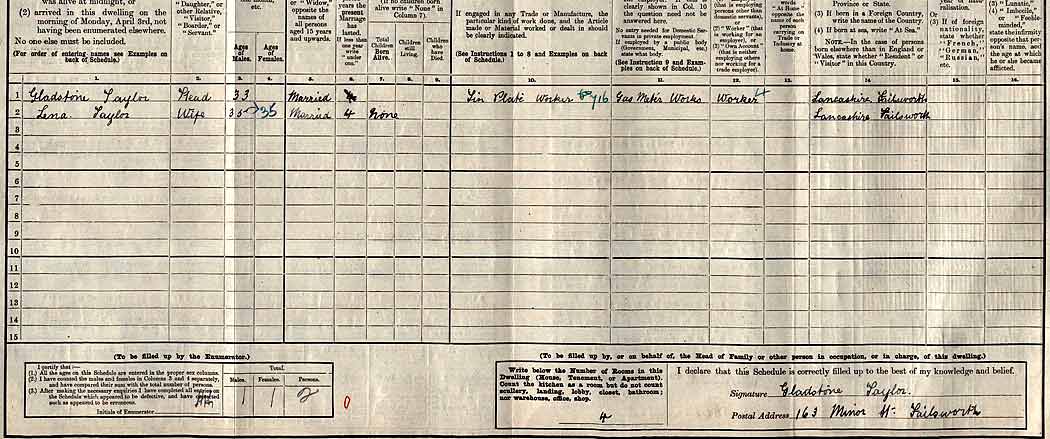 was alive at midnight, or
(2) arrived in this dwelling on the
morning of Monday, April 3rd, not
having been enumerated elsewhere.
No one else must be included.
(For order of entering names see Examples on
back of Schedule.)
"Daughter," or
other Relative,
"Visitor,"
"Boarder," or
"Servant."
etc.
Ages
of
Males.
Ages
of
Females.
or "Widow,"
opposite the
names of
all persons
aged 15 years
and upwards.
years the
present
Marriage
has
lasted.
If less than
one year
write
"under
one."
(If no children born
alive write "None" in
Column 7)
Total
Children
Born
Alive.
Children
still
Living.
Children
who
have
Died.
If engaged in any Trade or Manufacture, the
particular kind of work done, and the Article
made or Material worked or dealt in should
be clearly indicated.
(See Instructions 1 to 8 and Examples on back
of Schedule.)
clearly shown in Col. 10
the question need not be
answered here.
No entry needed for Domestic Ser-
vants in private employment.
If employed by a public body
(Government, Municipal, etc.)
state what body.
(See Instruction 9 and Exam-
ples on back of Schedule.)
(that is employing
persons other than
domestic servants),
or
"Worker" (that
is working for an
employer), or
(3) "Own Account"
(that is neither
employing others
nor working for a
trade employer).
words
"At Home"
opposite the
name of each
person
carrying on
Trade or
Industry at
home.
Province or State.
(3) If born in a Foreign Country,
write the name of the Country.
(4) If born at sea, write "At Sea."
NOTE.—In the case of persons
born elsewhere than in England or
Wales, state whether "Resident" or
"Visitor" in this Country.
(3) If of foreign
nationality,
state whether
"French,"
"German,"
"Russian,"
etc.
(2) "Lunatic,"
(3) "Imbecile,"
or "Feeble-
minded,"
state the infirmity
opposite that per-
son's name, and
the age at which
he or she became
afflicted.
1. 2. 3. 4. 5. 6. 7. 8. 9. 10. 11. 12. 13. 14. 15. 16.
1 Gladstone Taylor Head 33 Married Tin Plate Worker 916 Gas Meter Works Worker Lancashire Failsworth
2 Lena Taylor Wife 35 35 Married 4 None Lancashire Failsworth
3
4
5
6
7
8
9
10
11
12
13
14
15
(To be filled up by the Enumerator.)
I certify that:—
(1.) All the ages on this Schedule are entered in the proper sex columns.
(2.) I have counted the males and females in Columns 3 and 4 separately,
and have compared their sum with the total number of persons.
(3.) After making the necessary enquiries I have completed all entries on
the Schedule which appeared to be defective, and have corrected
such as appeared to be erroneous.
Initials of Enumerator
Total.
Males. Females. Persons.
1 1 2
0
(To be filled up by, or on behalf of, the Head of Family or other person in occupation, or in charge, of this dwelling.)
Write below the Number of Rooms in this
Dwelling (House, Tenement, or Apartment).
Count the kitchen as a room but do not count
scullery, landing, lobby, closet, bathroom;
nor warehouse, office, shop.
4
I declare that this Schedule is correctly filled up to the best of my knowledge and belief.
Signature Gladstone Taylor.
Postal Address 163 Minor St. Failsworth